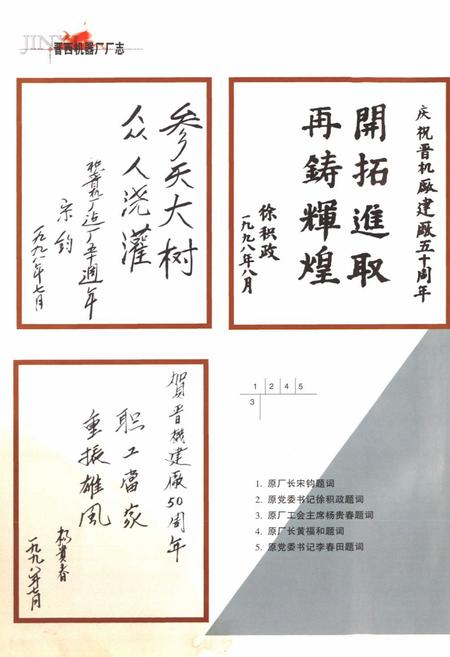 JIN
晋西机器厂厂志
参天大树
众人浇灌
祝晋机厂建厂五十周年
宋钧
一九九八年七月
庆祝晋机厰建厰五十周年
開拓進取
再鋳輝煌
徐积政
一九九八年八月
賀晋機建厰50周年
职工當家
重振雄風
杨貴春
一九九八年七月
1 2 4 5
3
1. 原厂长宋钧题词
2. 原党委书记徐积政题词
3. 原厂工会主席杨贵春题词
4. 原厂长黄福和题词
5. 原党委书记李春田题词